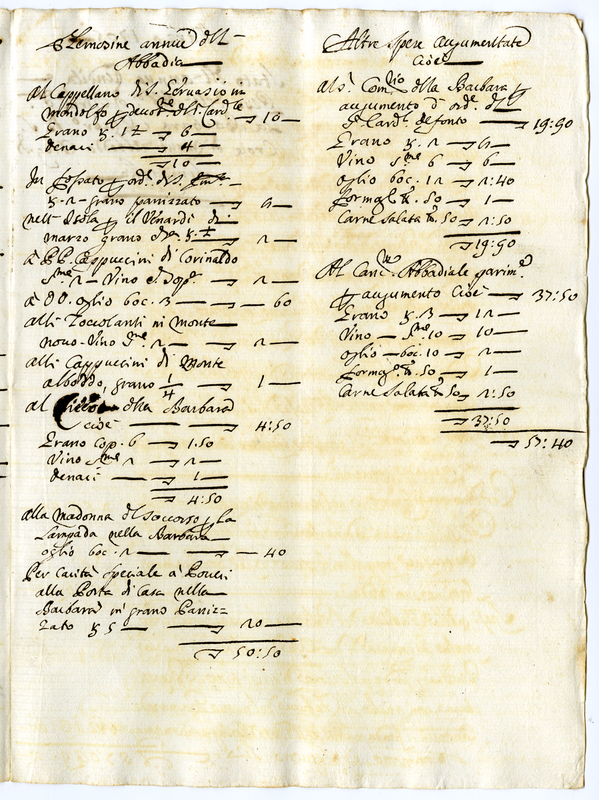 Elemosine annue dell'
Abbadia
Al Cappellano di S. Gervasio in
Mondolfo p devot.ne del S. Card.le — 10 —
Grano 1½ — 6 —
denari — 4 —
10 —
In Fossato p ord.e di S. Em.
2 - grano panizzato — 6 —
nell'Isola p il Vivardi di
marzo grano — 2 —
à PP. Cappuccini di Corinaldo
S.me 2 - Vino — 2 —
à DD. oglio boc. 3 — 60
alli Zoccolanti in Monte
novo - Vino S.me 2 — 2 —
alli Cappuccini di Monte
alboddo, grano 1/4 — 1 —
al della Barbara
cioè — 4:50
Grano cop. 6 — 1.50
Vino S.me 2 — 2 —
denari — 1 —
4:50
alla Madonna del Soccorso p la
Lampada nella Barbara
oglio boc. 2 — 40
Per Carità speciale à Poveri
alla Porta di Casa nella
Barbara in grano Paniz=
zato 5 — 20 —
50:50
Altre spese augumentate
cioè
Al S. Com.rio della Barbara p
augumento d'ord.e del
S.r Card.l defonto — 19:90
Grano 2 — 6 —
Vino S.me 6 — 6 —
oglio boc. 12 — 2:40
formag. 50 — 1 —
Carne salata 50 — 2:50
19:90
Al Canc.re Abbadiale parim.e
p augumento cioè — 37:50
Grano 3 — 12 —
Vino — S.me 10 — 10 —
oglio — boc. 10 — 2 —
formag. 50 — 1 —
Carne Salata 50 — 2:50
37:50
57:40